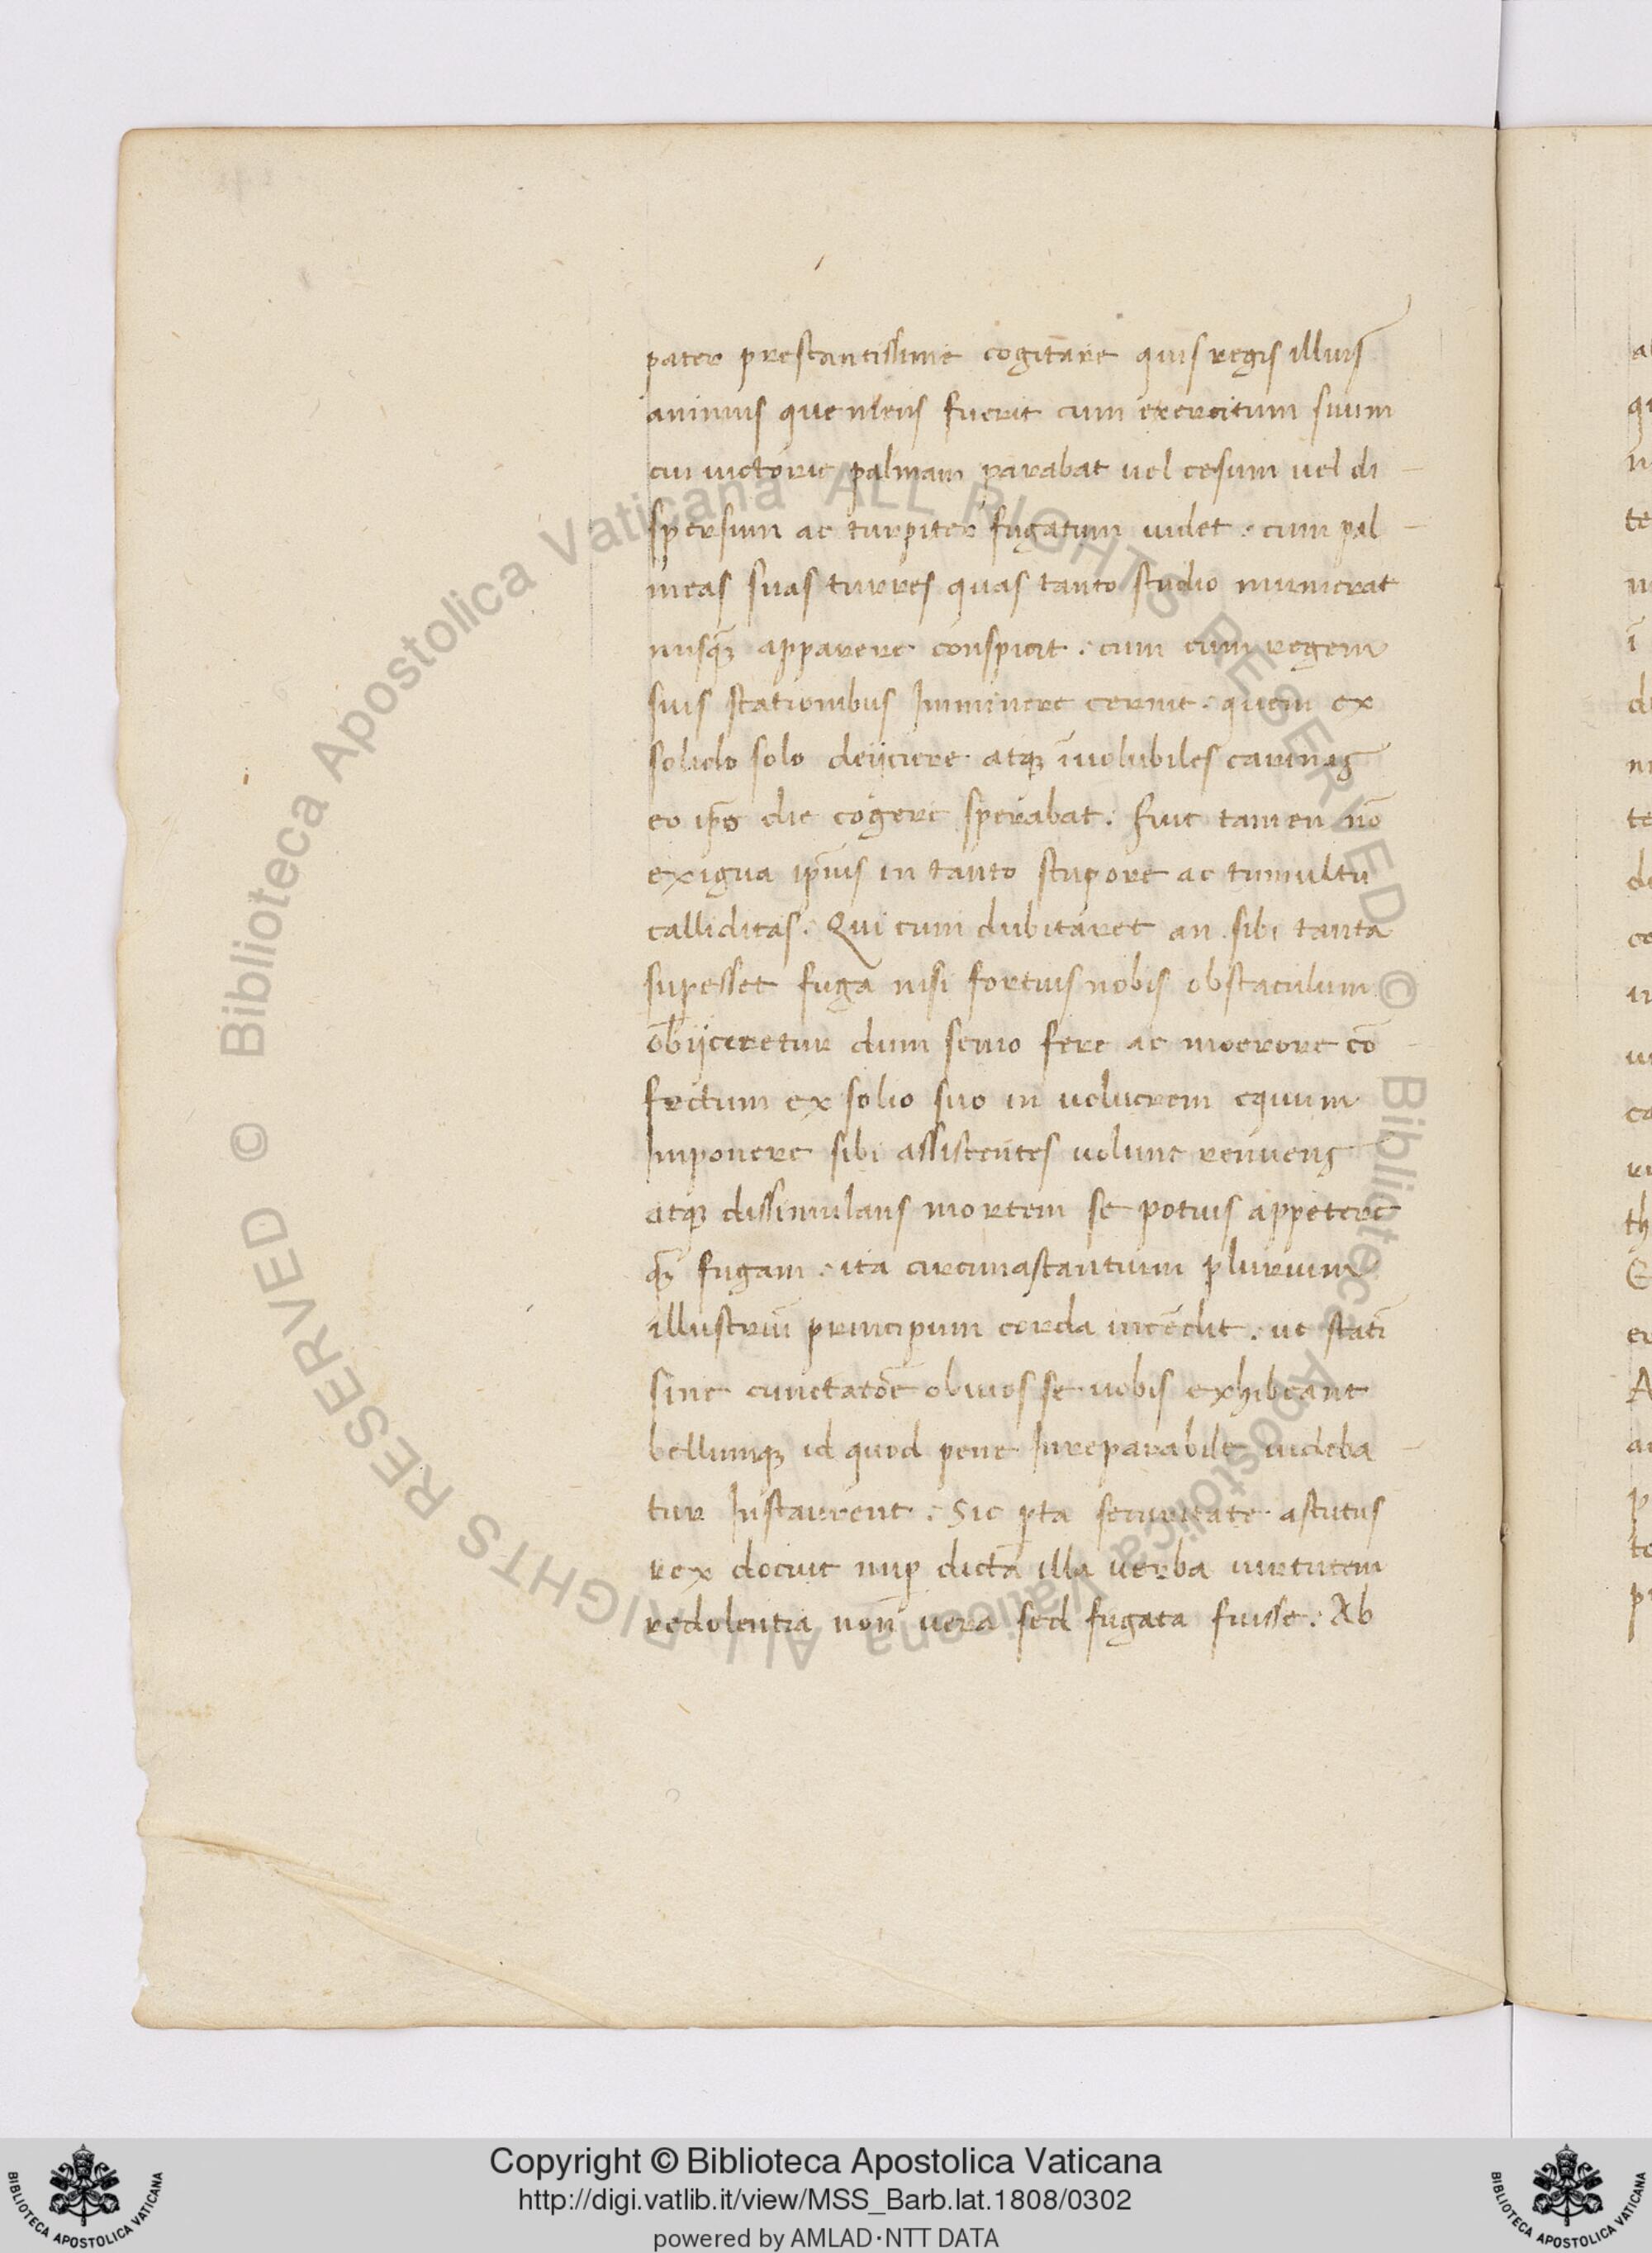 pater prestantissime cogitare quis regis illius
animus que mens fuerit cum exercitum suum
cui uictorie palmam parabat uel cesum uel di
spersum ac turpiter fugatum uidet . cum pal
meas suas turres quas tanto studio munierat
nusq̃ apparere conspicit . cum eum regem
suis stationibus Imminere cernit . quem ex
solido solo deijcere atq; ĩuolubiles carinas
eo ip̃o die cogere sperabat . fuit tamen nõ
exigua ip̃ius in tanto stupore ac tumultu
calliditas . Qui cum dubitaret an sibi tanta
supesset fuga nisi fortius nobis obstaculum
obijceretur dum senio fere ac moerore cõ
fectum ex solio suo in uolucrem equum
Imponere sibi assistentes uolunt renuens
atq; dissimulans mortem se potius appetere
q̃ fugam . ita circumastantium plurium
illustriũ principum corda incẽdit . ut statĩ
sine cunctatõe obuios se nobis exhibeant
bellumq; id quod pene Irreparabile uideba
tur Instaurent . Sic pta securitate astutus
rex docuit nup dicta illa uerba uirtutem
redolentia non uera sed fugata fuisse . Ab
Copyright © Biblioteca Apostolica Vaticana
http://digi.vatlib.it/view/MSS_Barb.lat.1808/0302
powered by AMLAD·NTT DATA